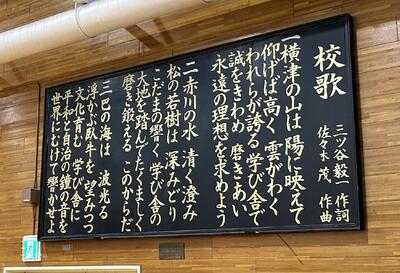 校歌
三ツ谷毅一 作詞
佐々木 茂 作曲
一 横津の山は 陽に映えて
仰げば高く 雲がわく
われらが誇る 学び舎で
誠をきわめ 磨きあい
永遠の理想を 求めよう
二 赤川の水 清く澄み
松の若樹は 深みどり
こだまの響く 学び舎の
大地を踏んで たくましく
磨き鍛える このからだ
三 巴の海は 波光る
浮かぶ臥牛を 望みつつ
文化育む 学び舎に
平和と自治の 鐘の音を
世界にむけて 響かせよ